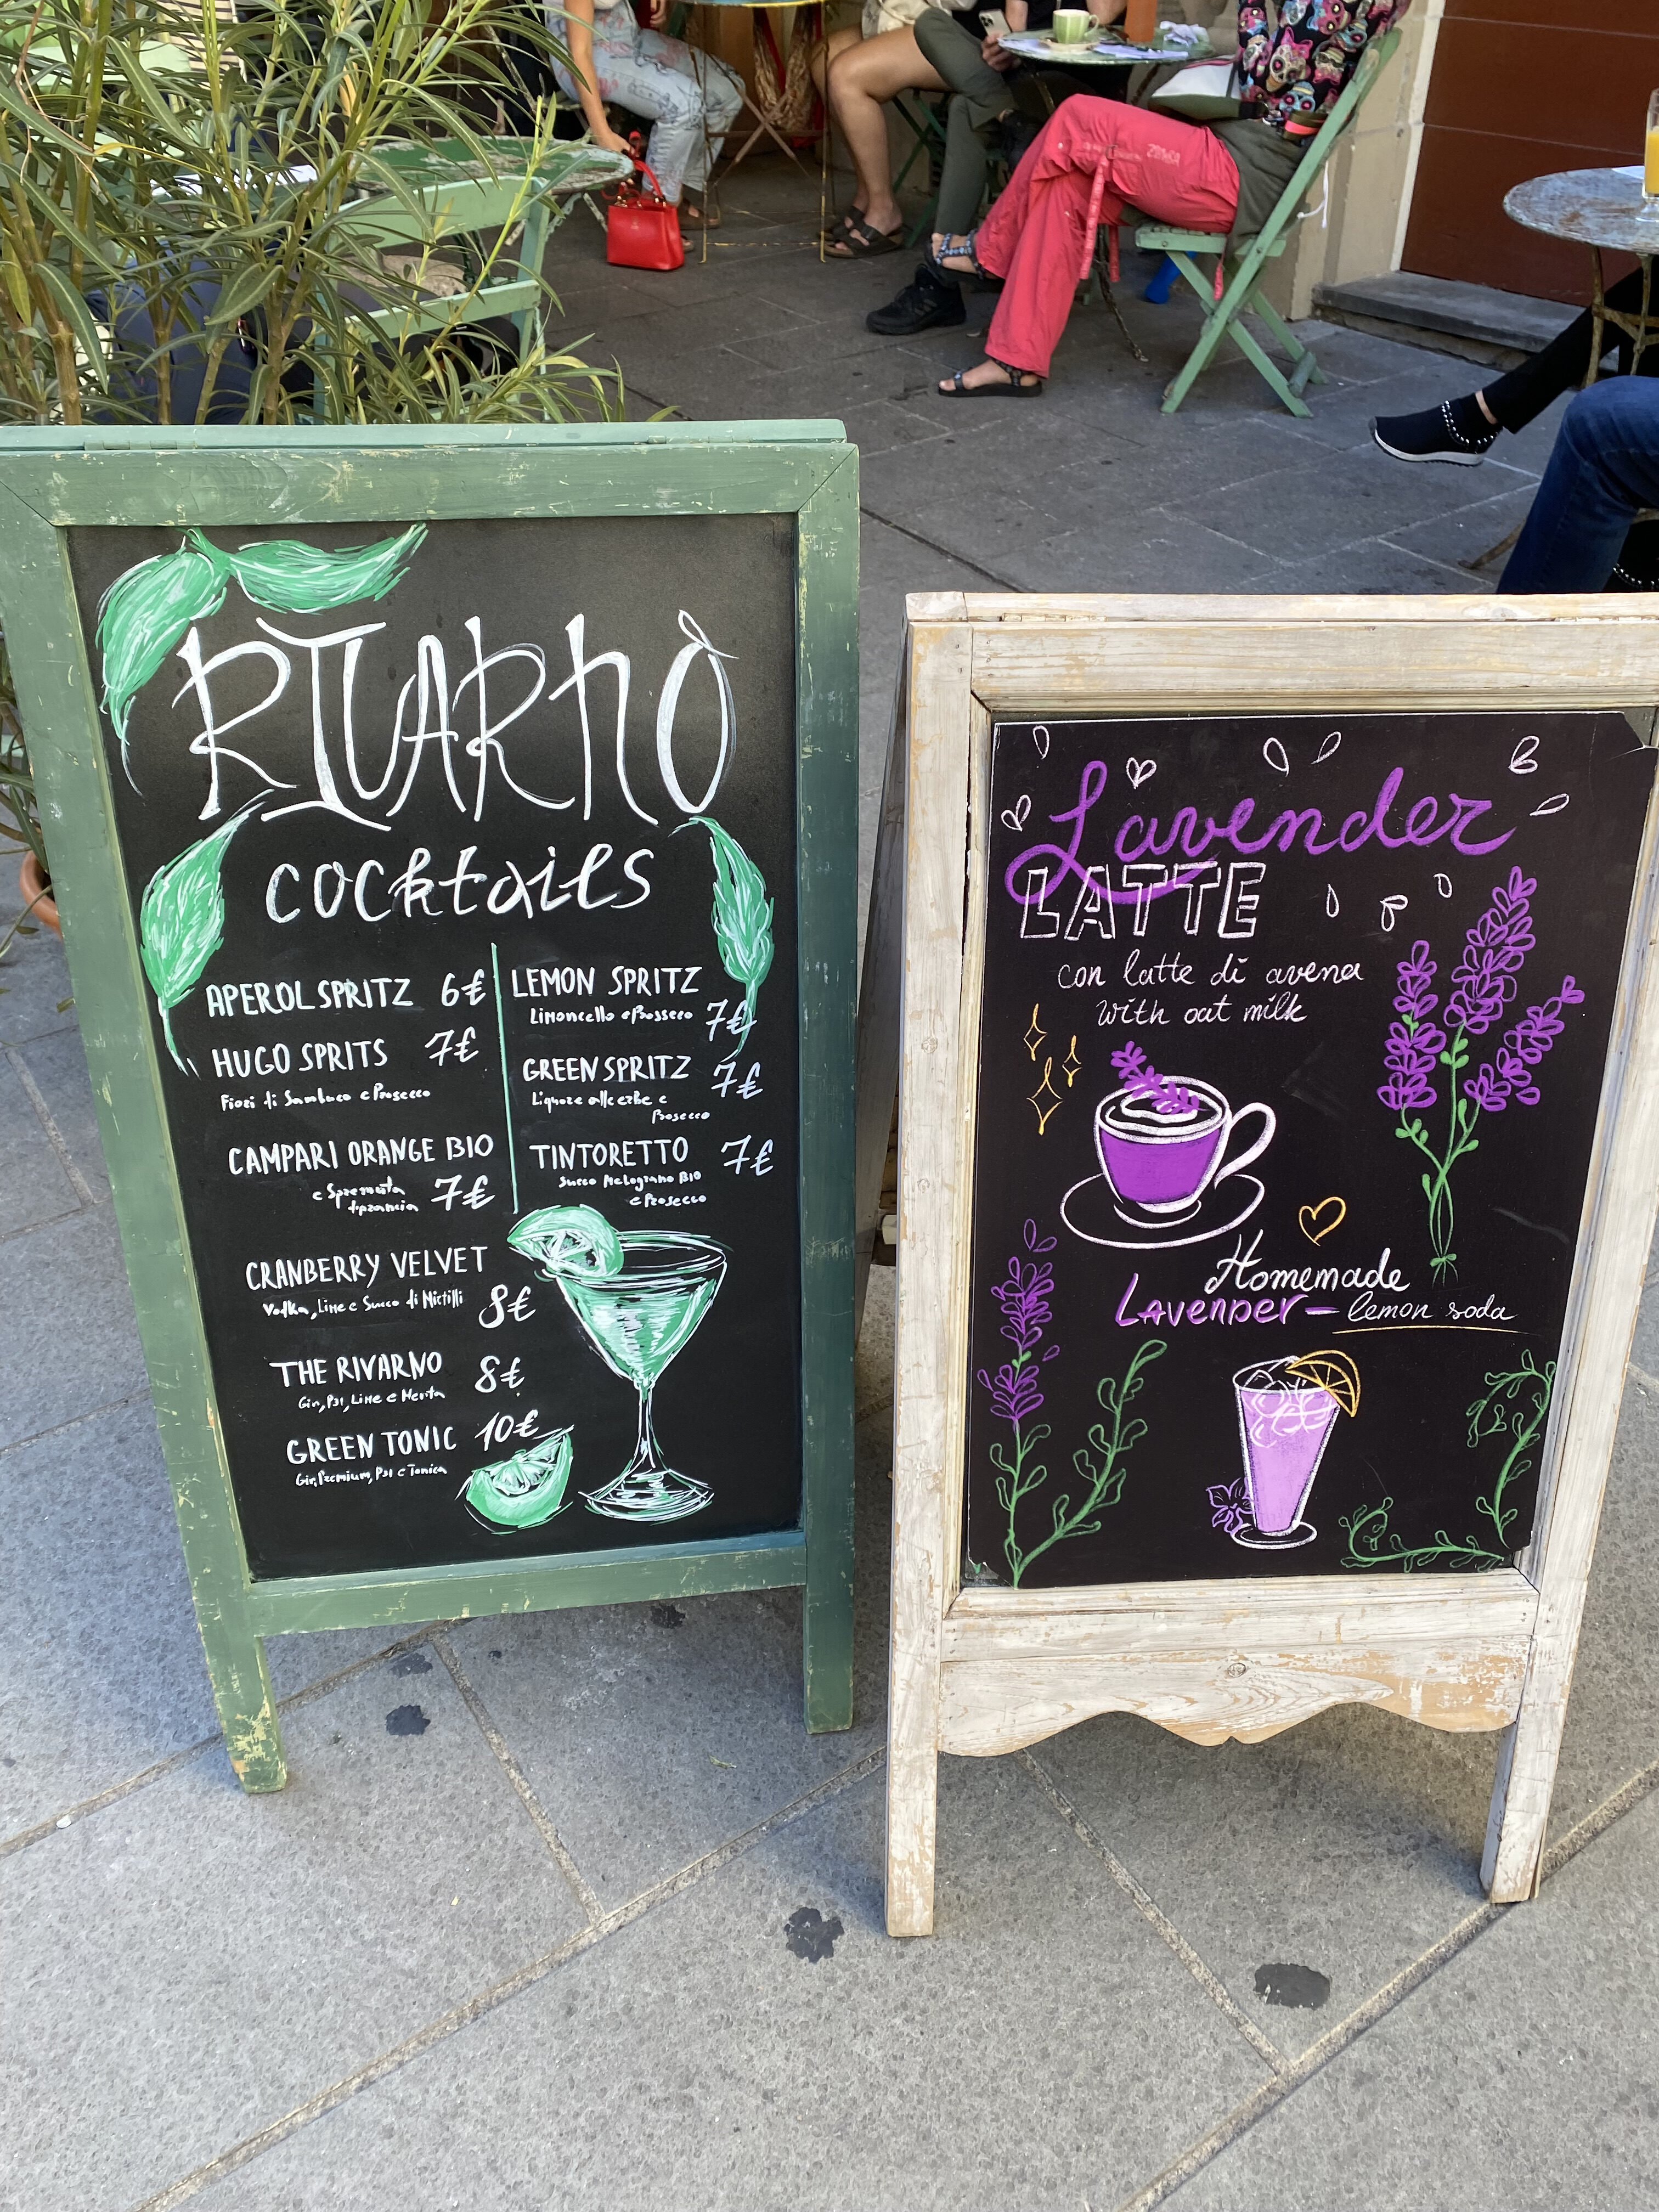 RIVARNÒ
cocktails
APEROL SPRITZ 6€
HUGO SPRITS 7€
Fiori di Sambuco e Prosecco
CAMPARI ORANGE BIO
e Spremuta
d'arancia 7€
CRANBERRY VELVET
Vodka, Lime e Succo di Mirtilli 8€
THE RIVARNO 8€
Gin, Por, Lime e Menta
GREEN TONIC 10€
Gin, Premium, Por e Tonica
LEMON SPRITZ
Limoncello e Prosseco 7€
GREEN SPRITZ 7€
Liquore alle erbe e
Prosecco
TINTORETTO 7€
Succo Melograno BIO
e Prosecco
Lavender
LATTE
con latte di avena
with oat milk
Homemade
LAVENDER - lemon soda